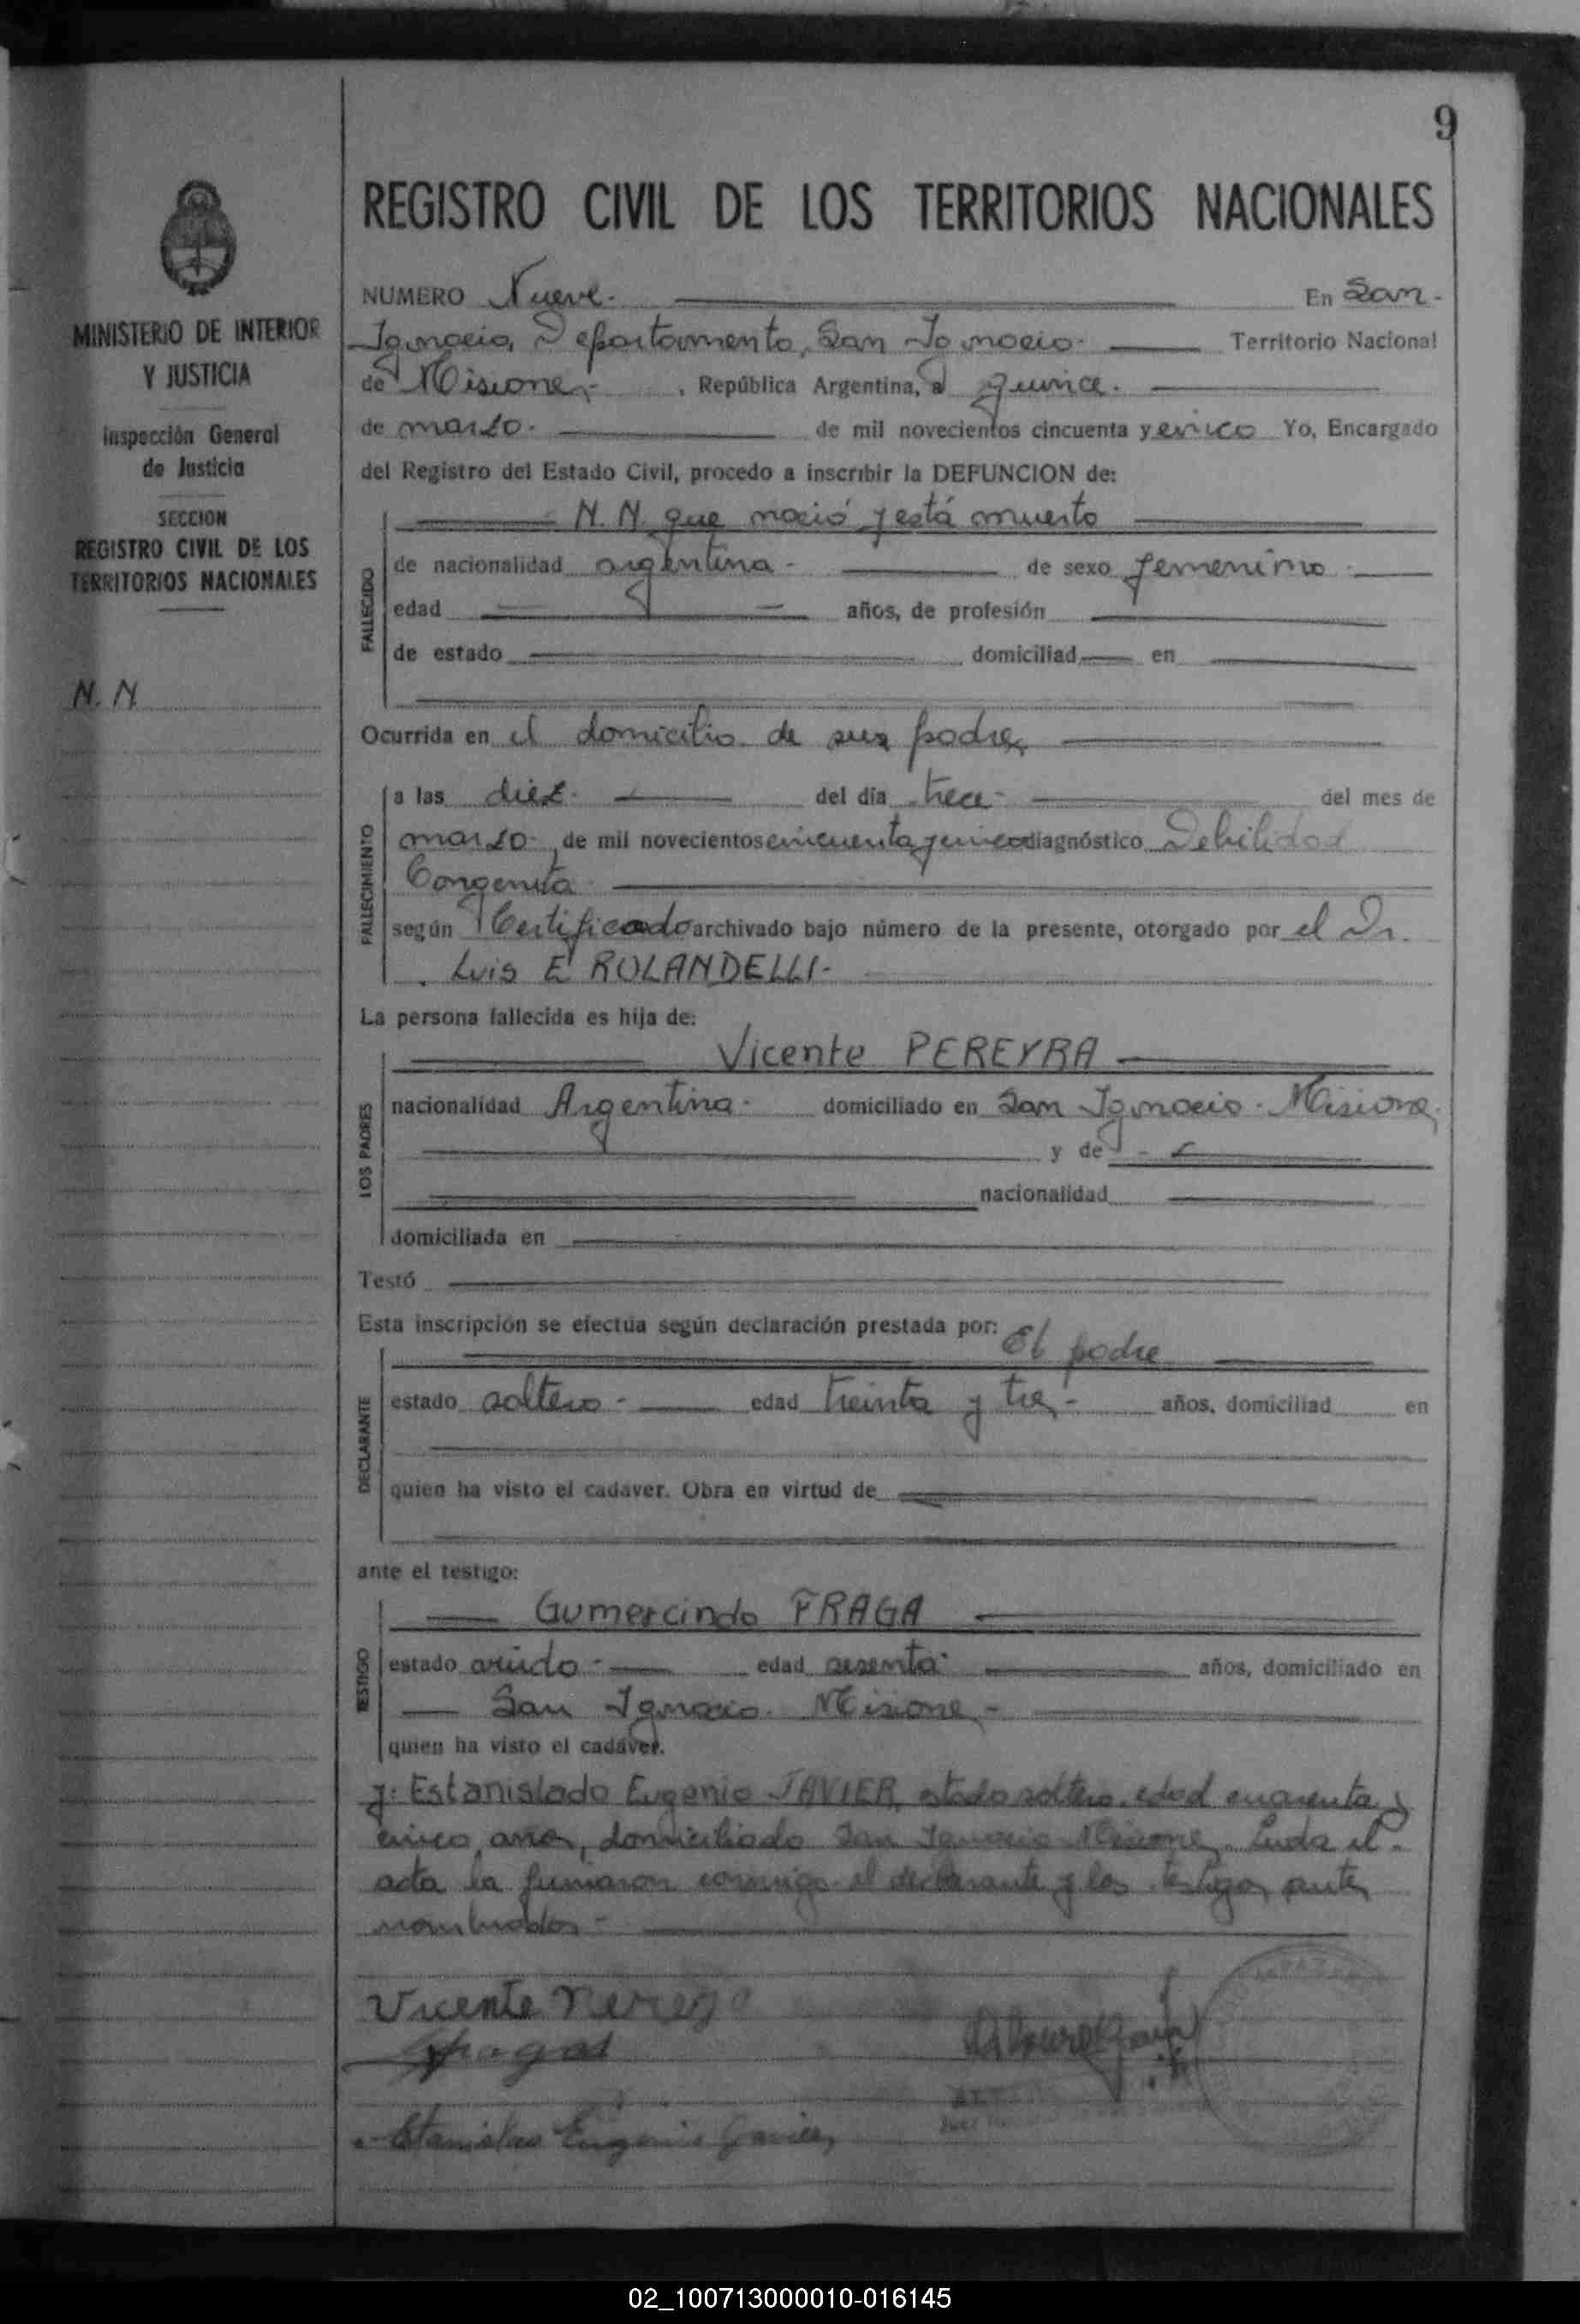 9
REGISTRO CIVIL DE LOS TERRITORIOS NACIONALES
MINISTERIO DE INTERIOR
Y JUSTICIA
Inspección General
de Justicia
SECCION
REGISTRO CIVIL DE LOS
TERRITORIOS NACIONALES
N. N.
NUMERO Nueve. En San
Ignacio, Departamento, San Ignacio. Territorio Nacional
de Misiones, República Argentina, a quince.
de marzo. de mil novecientos cincuenta y cinco Yo, Encargado
del Registro del Estado Civil, procedo a inscribir la DEFUNCION de:
N. N. que nació y está muerto
FALLECIDO
de nacionalidad argentina de sexo femenino
edad años, de profesión
de estado domiciliad en
Ocurrida en el domicilio de sus padres
FALLECIMIENTO
a las diez. del día trece del mes de
marzo de mil novecientos cincuenta y cinco diagnóstico Debilidad
Congenita
según Certificado archivado bajo número de la presente, otorgado por el Dr.
Luis E ROLANDELLI.
La persona fallecida es hija de:
Vicente PEREYRA
LOS PADRES
nacionalidad Argentina domiciliado en San Ignacio. Misiones
y de
nacionalidad
domiciliada en
Testó
Esta inscripción se efectúa según declaración prestada por:
El padre
DECLARANTE
estado soltero edad treinta y tres años, domiciliad en
quien ha visto el cadáver. Obra en virtud de
ante el testigo:
Gumercindo FRAGA
TESTIGO
estado viudo edad sesenta años, domiciliado en
San Ignacio. Misiones
quien ha visto el cadáver.
y: Estanislado Eugenio JAVIER, estado soltero, edad cuarenta y
cinco años, domiciliado San Ignacio Misiones. Leida el
acta la firmaron conmigo el declarante y los testigos antes
nombrados
Vicente Pereyra
Fragas
Estanislao Eugenio Javier
02_100713000010-016145